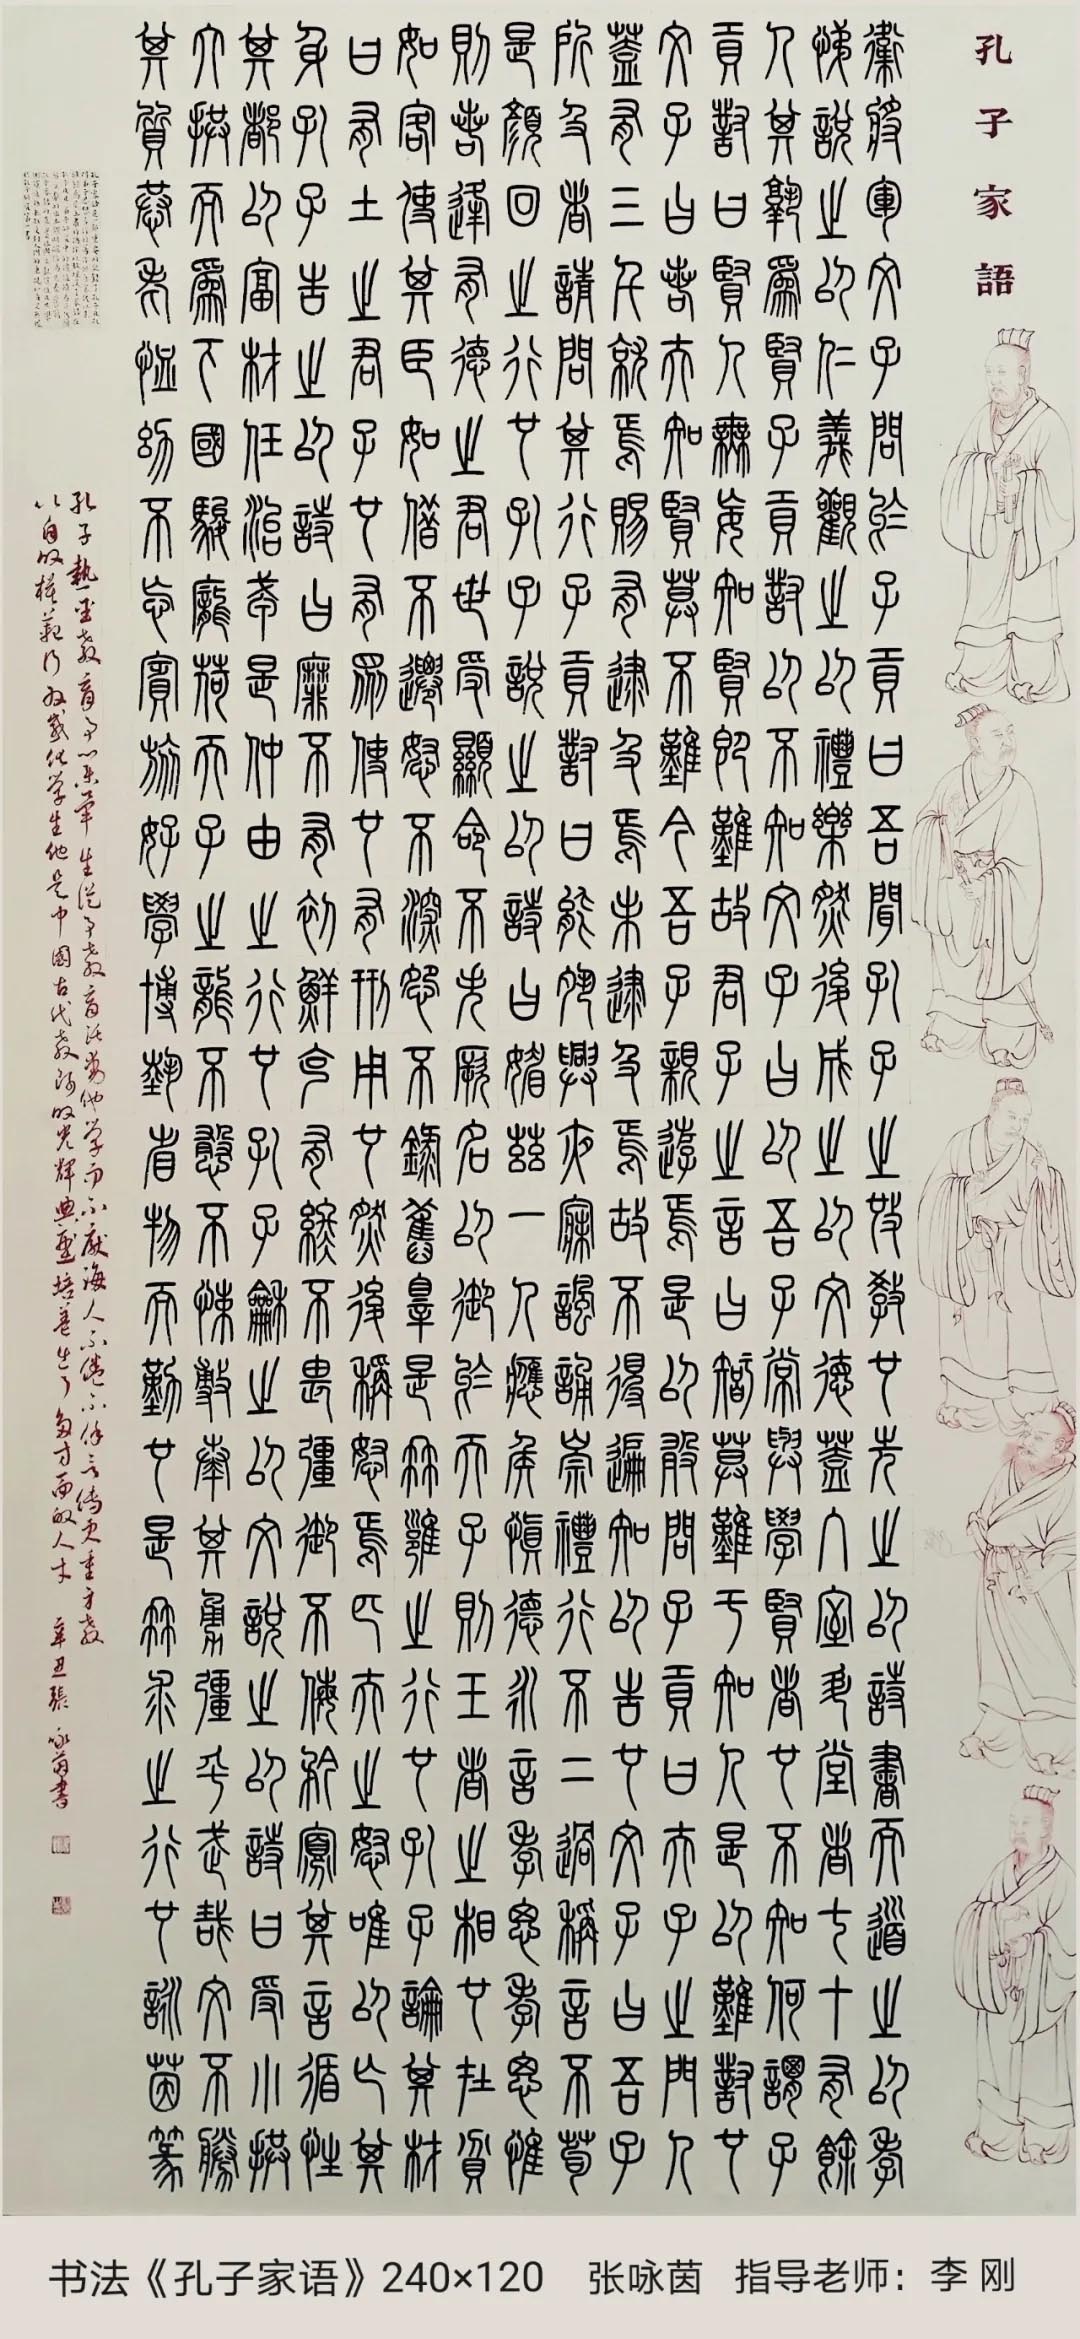 孔子家語
衞將軍文子問於子貢曰吾聞孔子之施教也先之以詩書而道之以孝
悌說之以仁義觀之以禮樂然後成之以文德蓋入室升堂者七十有餘
人其孰爲賢子貢對以不知文子曰以吾子常與學賢者也不知何謂子
貢對曰賢人無妄知賢即難故君子之言曰智莫難于知人是以難對也
文子曰若夫知賢莫不難今吾子親遊焉是以敢問子貢曰夫子之門人
蓋有三千就焉賜有逮及焉未逮及焉故不得遍知以告也文子曰吾子
所及者請問其行子貢對曰能夙興夜寐諷誦崇禮行不二過稱言不苟
是顏回之行也孔子說之以詩曰媚茲一人應侯慎德永言孝思孝思惟
則若逢有德之君世受顯命不失厥名以御於天子則王者之相也在貧
如客使其臣如借不遷怒不深怨不錄舊罪是冉雍之行也孔子論其材
曰有土之君子也有眾使也有刑用也然後稱怒焉匹夫之怒唯以亡其
身孔子告之以詩曰靡不有初鮮克有終不畏彊御不侮矜寡其言循性
其都以富材任治戎是仲由之行也孔子龢之以文說之以詩曰受小拱
大拱而爲下國駿龐荷天子之龍不戁不悚敷奏其勇彊乎武哉文不勝
其質恭老恤幼不忘賓旅好學博藝省物而勤也是冉求之行也詠茵篆
孔子熱愛教育事业畢生從事教育活動他学而不厭誨人不倦不僅言傳更重身教
以自的模範行为感化学生他是中國古代教师的光輝典型培養出了多方面的人才 辛丑張詠茵書
书法《孔子家语》240×120 张咏茵 指导老师：李刚